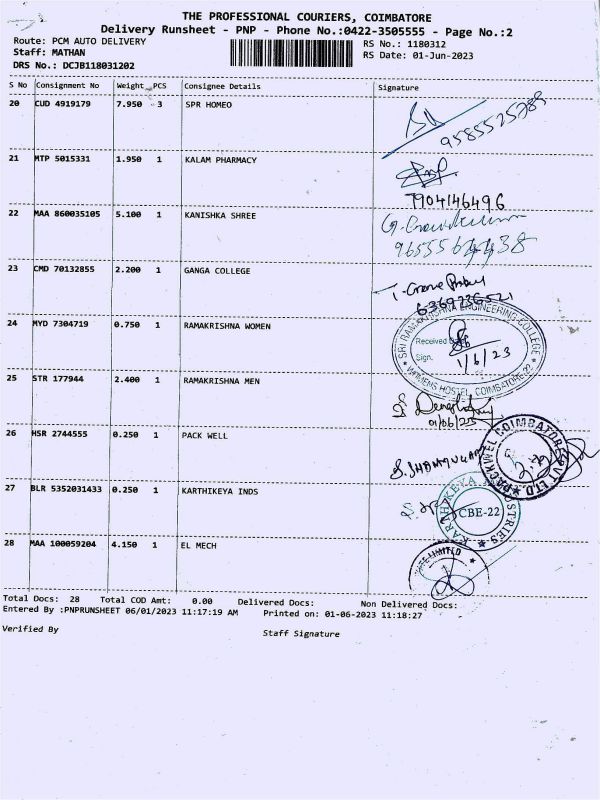 THE PROFESSIONAL COURIERS, COIMBATORE
Delivery Runsheet - PNP - Phone No.:0422-3505555 - Page No.:2
Route: PCM AUTO DELIVERY
RS No.: 1180312
Staff: MATHAN
RS Date: 01-Jun-2023
DRS No.: DCJB118031202
S No Consignment No Weight PCS Consignee Details Signature
20 CUD 4919179 7.950 3 SPR HOMEO
9585525789
21 MTP 5015331 1.950 1 KALAM PHARMACY
7904146496
22 MAA 860035105 5.100 1 KANISHKA SHREE
9655564438
23 CMD 70132855 2.200 1 GANGA COLLEGE
24 MYD 7304719 0.750 1 RAMAKRISHNA WOMEN
SRI RAMAKRISHNA ENGINEERING COLLEGE
Received
Sign.
1/6/23
WOMENS HOSTEL, COIMBATORE-22
25 STR 177944 2.400 1 RAMAKRISHNA MEN
01/06/23
26 HSR 2744555 0.250 1 PACK WELL
S. SHANMUGAM
PACKWEL COIMBATORE PVT LTD.
27 BLR 5352031433 0.250 1 KARTHIKEYA INDS
CBE-22
28 MAA 100059204 4.150 1 EL MECH
LIMITED
Total Docs: 28 Total COD Amt: 0.00 Delivered Docs: Non Delivered Docs:
Entered By :PNPRUNSHEET 06/01/2023 11:17:19 AM Printed on: 01-06-2023 11:18:27
Verified By Staff Signature